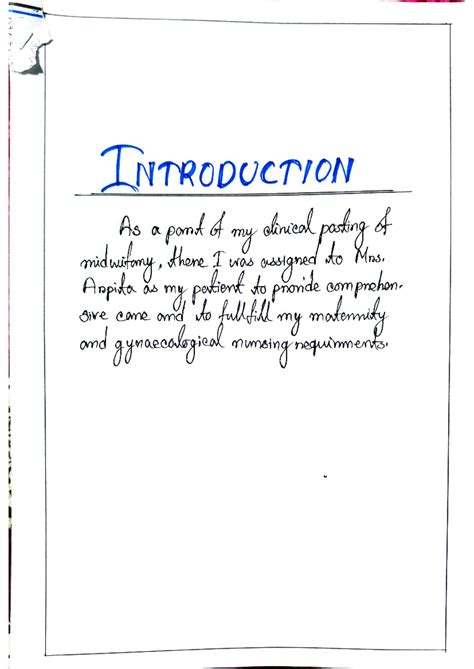 INTRODUCTION
As a part of my clinical posting of
midwifary, there I was assigned to Mrs.
Arpita as my patient to provide comprehen-
sive care and to fullfill my maternity
and gynaecological nursing requirments.